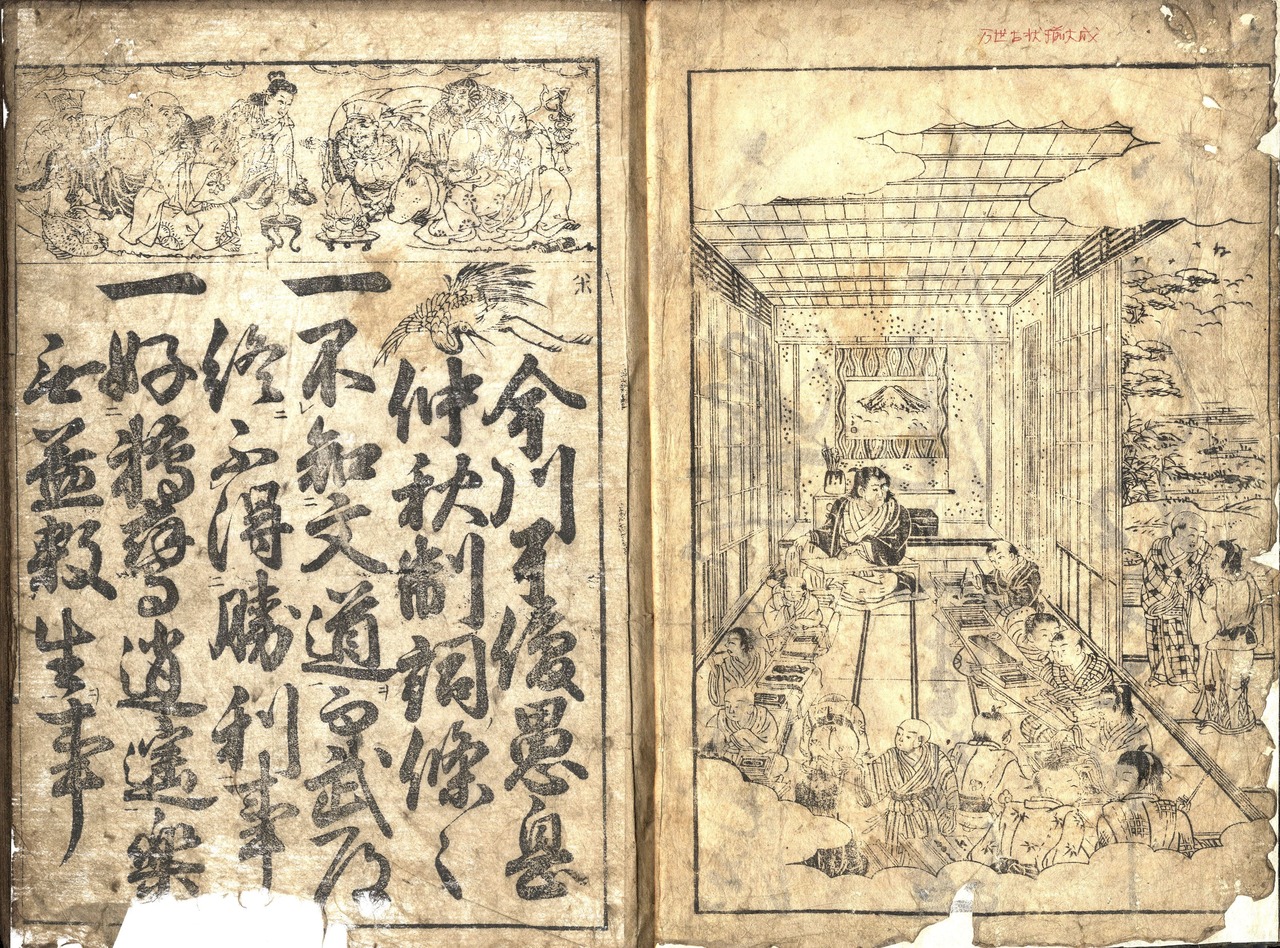 万世古状揃大成
今川了俊愚息
仲秋制詞條〻
一不知文道而武道
終不得勝利事
一好鵜鷹逍遥樂
無益殺生事